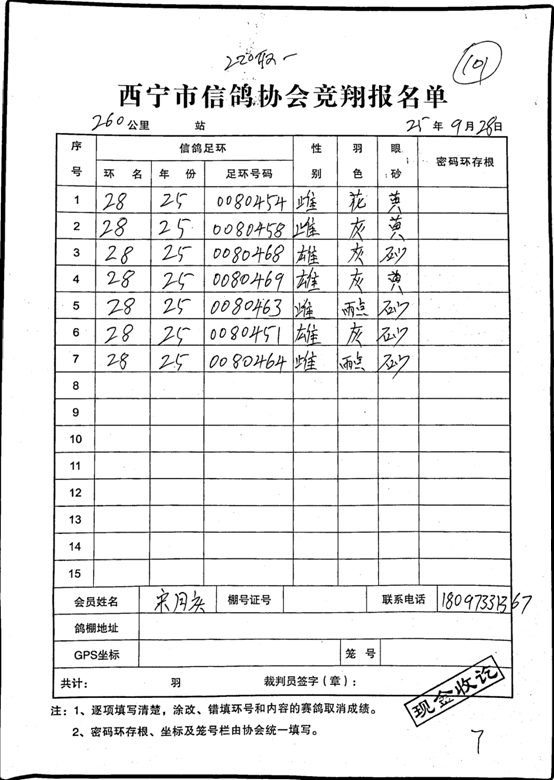 220取一
(10)
西宁市信鸽协会竞翔报名单
260公里 站 25年9月28日
序号 信鸽足环 性别 羽色 眼砂 密码环存根
环 名 年 份 足环号码
1 28 25 0080454 雌 花 黄
2 28 25 0080458 雌 灰 黄
3 28 25 0080468 雄 灰 砂
4 28 25 0080469 雄 灰 黄
5 28 25 0080463 雌 雨点 砂
6 28 25 0080451 雄 灰 砂
7 28 25 0080464 雌 雨点 砂
8
9
10
11
12
13
14
15
会员姓名 宋 棚号证号 联系电话
鸽棚地址
GPS坐标 笼 号
共计： 羽 裁判员签字（章）：
现金收讫
注：1、逐项填写清楚，涂改、错填环号和内容的赛鸽取消成绩。
2、密码环存根、坐标及笼号栏由协会统一填写。
7